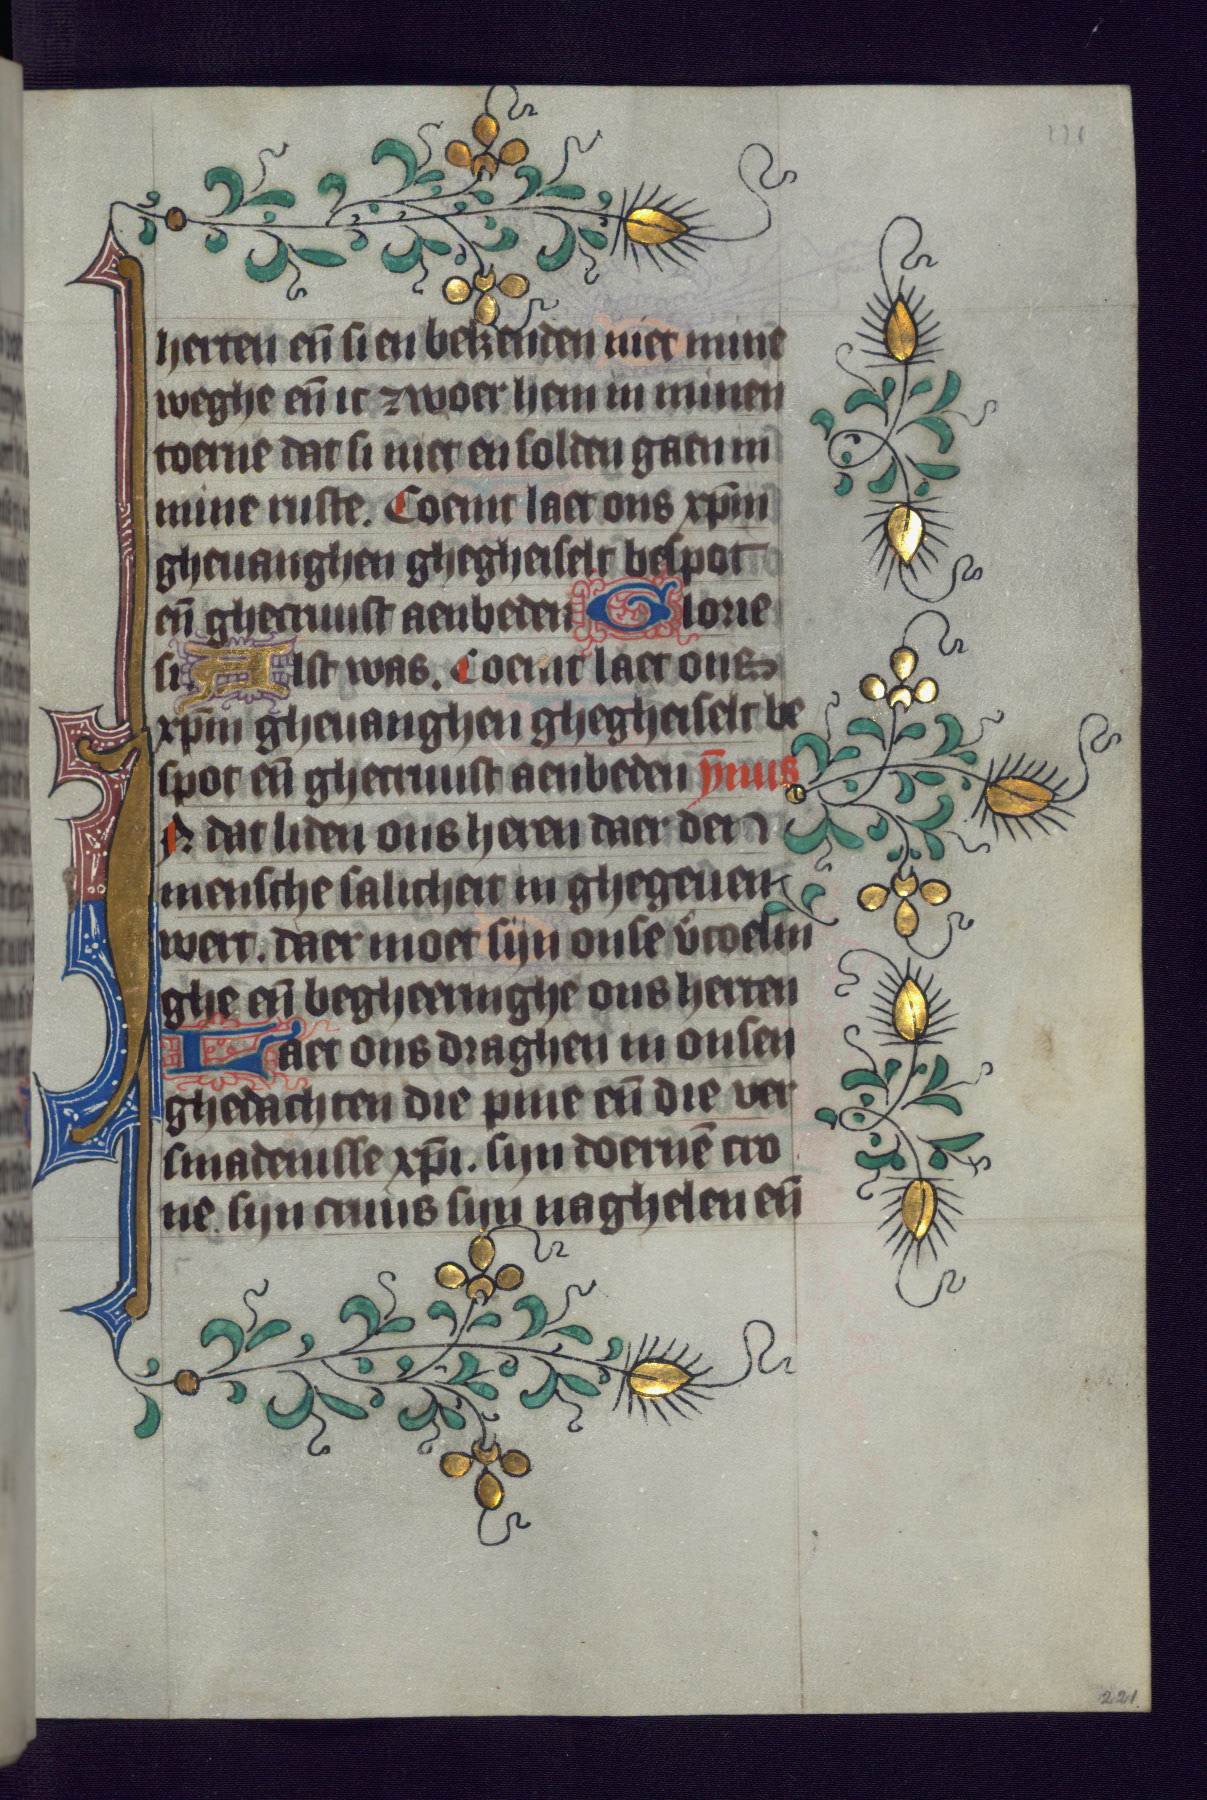 221
herten en̄ si en bekenden niet mine
weghe en̄ ic zwoer hem in minen
toerne dat si niet en solden gaen in
mine ruste. Coemt laet ons xp̄m
gheuanghen ghegheiselt bespot
en̄ ghecruust aenbeden Glorie
si. Alst was. Coemt laet ons
xp̄m gheuanghen ghegheiselt be
spot en̄ ghecruust aenbeden ȳmus
In dat liden ons heren daer der
mensche salicheit in ghegeuen
wert. daer moet sijn onse v̄coelin
ghe en̄ begheeringhe ons herten
Laet ons draghen in onsen
ghedachten die pine en̄ die ver
smadenisse xp̄i. sijn doernē cro
ne sijn cruus sijn naghelen en̄
221